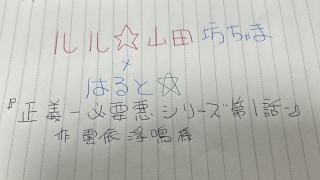 ルル☆山田坊ちゃま
×
はると☆
『正義-必要悪シリーズ第1話-』
作雲依浮鳴森